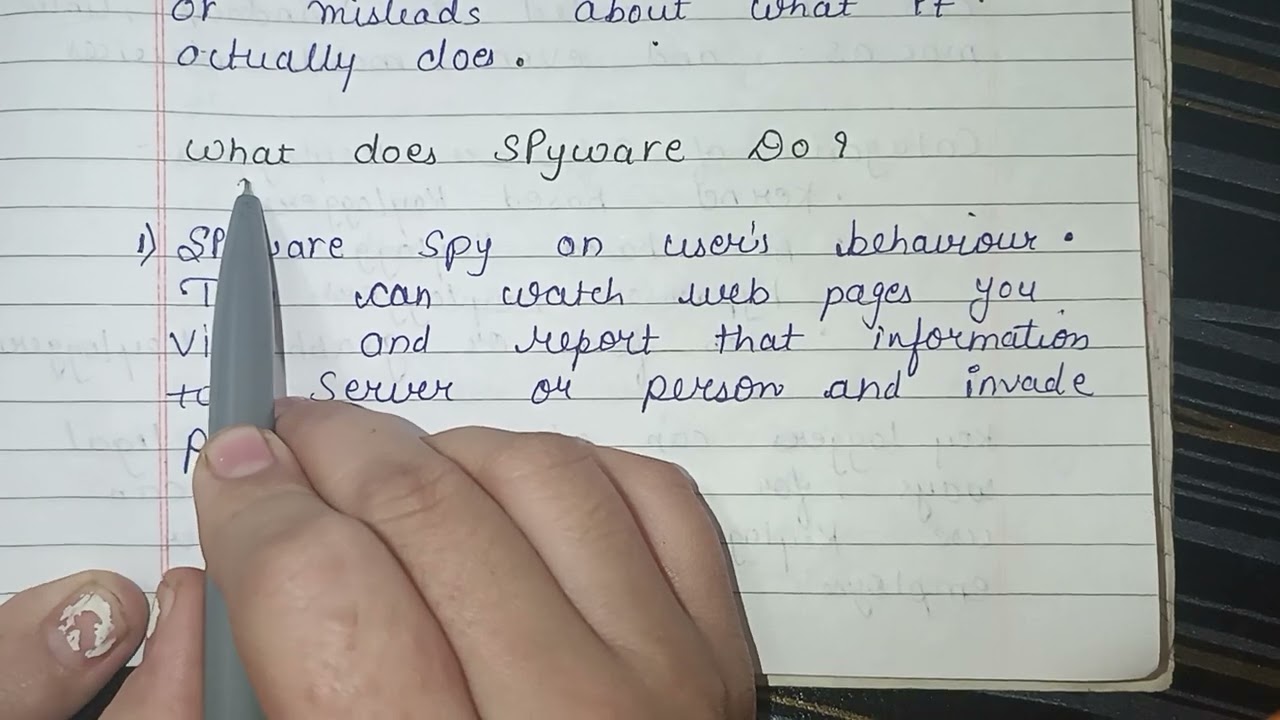 or misleads about what it
actually does.
What does SPyware Do?
1) spy on user's behaviour.
can watch web pages you
and report that information
server or person and invade